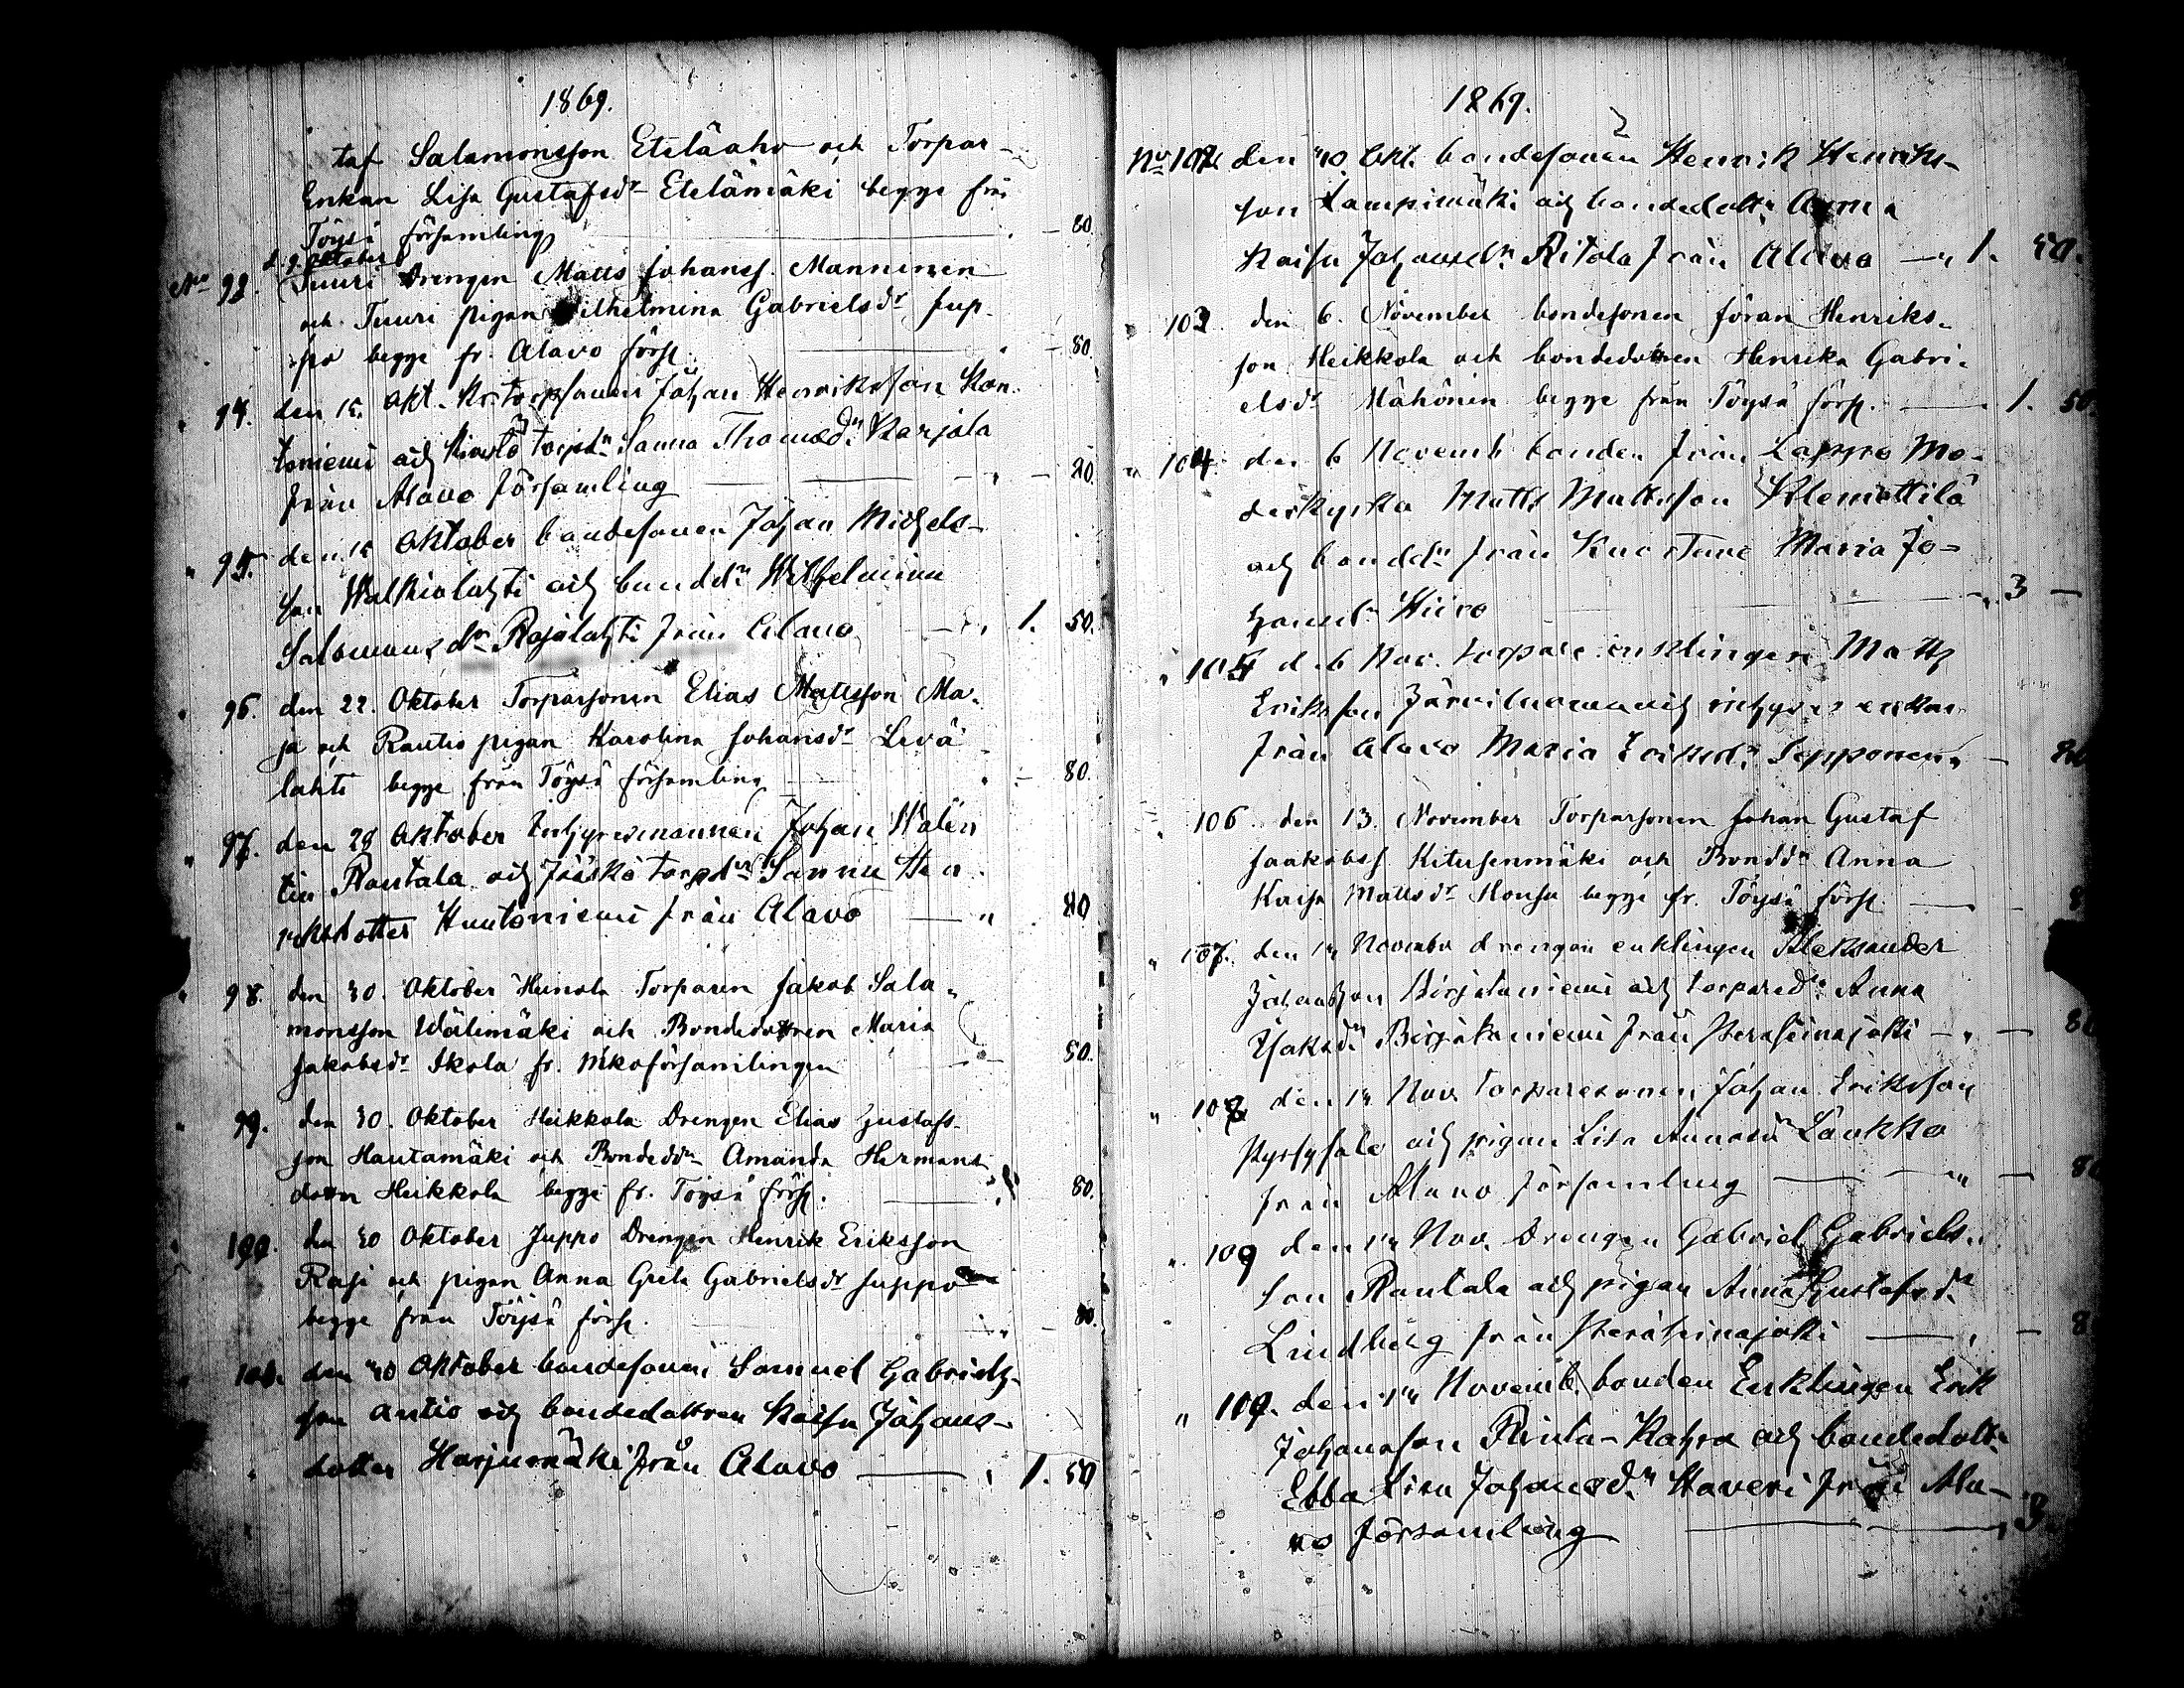 1869.
taf Salamonsson Eteläaho och Torpar-
Enkan Lisa Gustafsdr Etelämäki begge från
Töysä församling — 80.
d. 9. Oktober
No 93. Tuuri Drengen Matts Johanss. Manninen
och Tuuri pigan Wilhelmina Gabrielsdr Jup-
po begge fr. Alavo förs. — 80.
94. den 15. Okt. torpsonen Johan Henriksson Kon-
toniemi och torpdr Sanna Thomasdr Karjala
från Alavo församling — 80.
" 95. den 15 Oktober bondesonen Johan Michels-
son Walkialahti och bonddr Wilhelmina
Salomonsdr Rajalahti från Alavo — " 1. 50.
96. den 22. Oktober Torparsonen Elias Mattsson Ma-
ja och Rautio pigan Karolina Johansdr Levä-
lahti begge från Töysä församling — 80.
" 97. den 28 Oktober Inhysesmannen Johan Walen-
tin Rautala och Jääskö torpdr Sanna Hen-
riksdotter Kuutoniemi från Alavo — " 80
98. den 30. Oktober Hunola Torparen Jakob Sala-
monsson Wälimäki och Bondedottren Maria
Jakobsdr Skola fr. församlingen — 80.
99. den 30. Oktober Heikkola Drengen Elias Gustafs-
son Hautamäki och Bondeddr Amanda Hermans-
dottr Heikkola begge fr. Töysä förs. — 80.
100. den 30 Oktober Juppo Drengen Henrik Eriksson
Rasi och pigan Anna Greta Gabrielsdr Juppo
begge från Töysä förs. — 80.
101. den 30 Oktober bondesonen Samuel Gabriels-
son Antio och bondedottren Kaisa Johans-
dotter Harjumäki från Alavo — " 1. 50
1869.
No 102 den 30. Okt. bondesonen Henrik Henriks-
son Lampimäki och bondedottr Anna
Kaisa Johansdr Ritola från Alavo — " 1. 50.
103 den 6. November bondesonen Joran Henriks-
son Heikkola och bondedottren Henrika Gabri-
elsdr Mähönen begge från Töysä förs. — 1. 50.
" 104 den 6 Novemb bonden från Lappo Mo-
derkyrka Matts Mattsson Klemettilä
och bonddr från Kuortane Maria Jo-
hansdr Hiiro — " 3 —
" 105 d. 6 Nov. torpare enklingen Matts
Eriksson Järviluoma och inhyses enkan
från Alavo Maria Eriksdr Sepponen " — 80
" 106 den 13. November Torparsonen Johan Gustaf
Jaakobss. Kitusenmäki och Bonddr Anna
Kaisa Mattsdr Honsa begge fr. Töysä förs. — 8
" 107. den 14 November drengen enklingen Aleksander
Johansson Pirjetaniemi och torparedr Anna
Isaksdr Pirjetaniemi från Peräseinäjoki — " — 80
" 108 den 14 Nov. torparesonen Johan Eriksson
Pyssysalo och pigan Lisa Annasdr Laukko
från Alavo församling — " — 80
" 109 den 14 Nov. Drengen Gabriel Gabriels-
son Rautala och pigan Anna Gustafsdr
Lindberg från Peräseinäjoki — " — 8
" 109. den 14 Novemb. bonden Enklingen Erik
Johansson Rinta-Kahra och bondedottr
Ebba Lisa Johansdr Haveri från Ala-
vo församling — " 3.